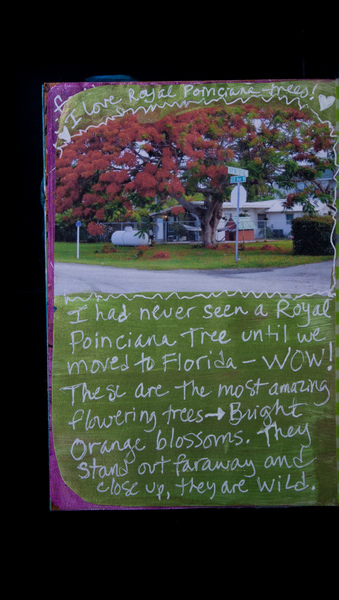 I love Royal Poinciana trees!
I had never seen a Royal
Poinciana Tree until we
moved to Florida - WOW!
These are the most amazing
flowering trees → Bright
Orange blossoms. They
Stand out faraway and
close up, they are wild.